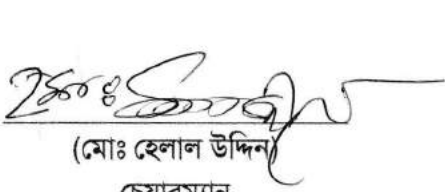 (মোঃ হেলাল উদ্দিন)
চেয়ারম্যান